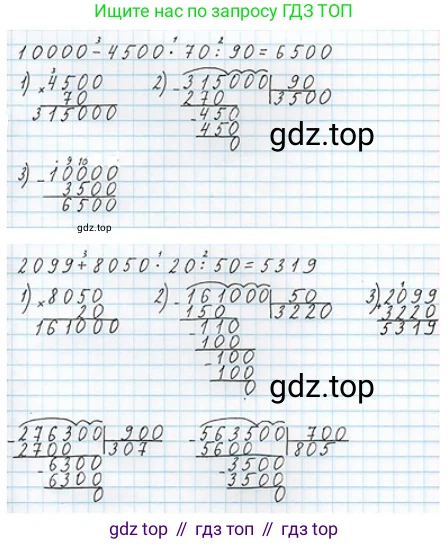 Ищите нас по запросу ГДЗ ТОП
10000 - 4500 · 70 : 90 = 6500
3 1 2
1) × 4500
70
315000
2) - 315000 | 90
270 | 3500
- 450
450
0
gdz.top
3) - 10000
3500
6500
9 10
gdz.top
2099 + 8050 · 20 : 50 = 5319
3 1 2
1) × 8050
20
161000
2) - 161000 | 50
150 | 3220
- 110
100
- 100
100
0
3) + 2099
3220
5319
gdz.top
- 276300 | 900
2700 | 307
- 6300
6300
0
- 563500 | 700
5600 | 805
- 3500
3500
0
gdz топ // гдз топ // гдз.top